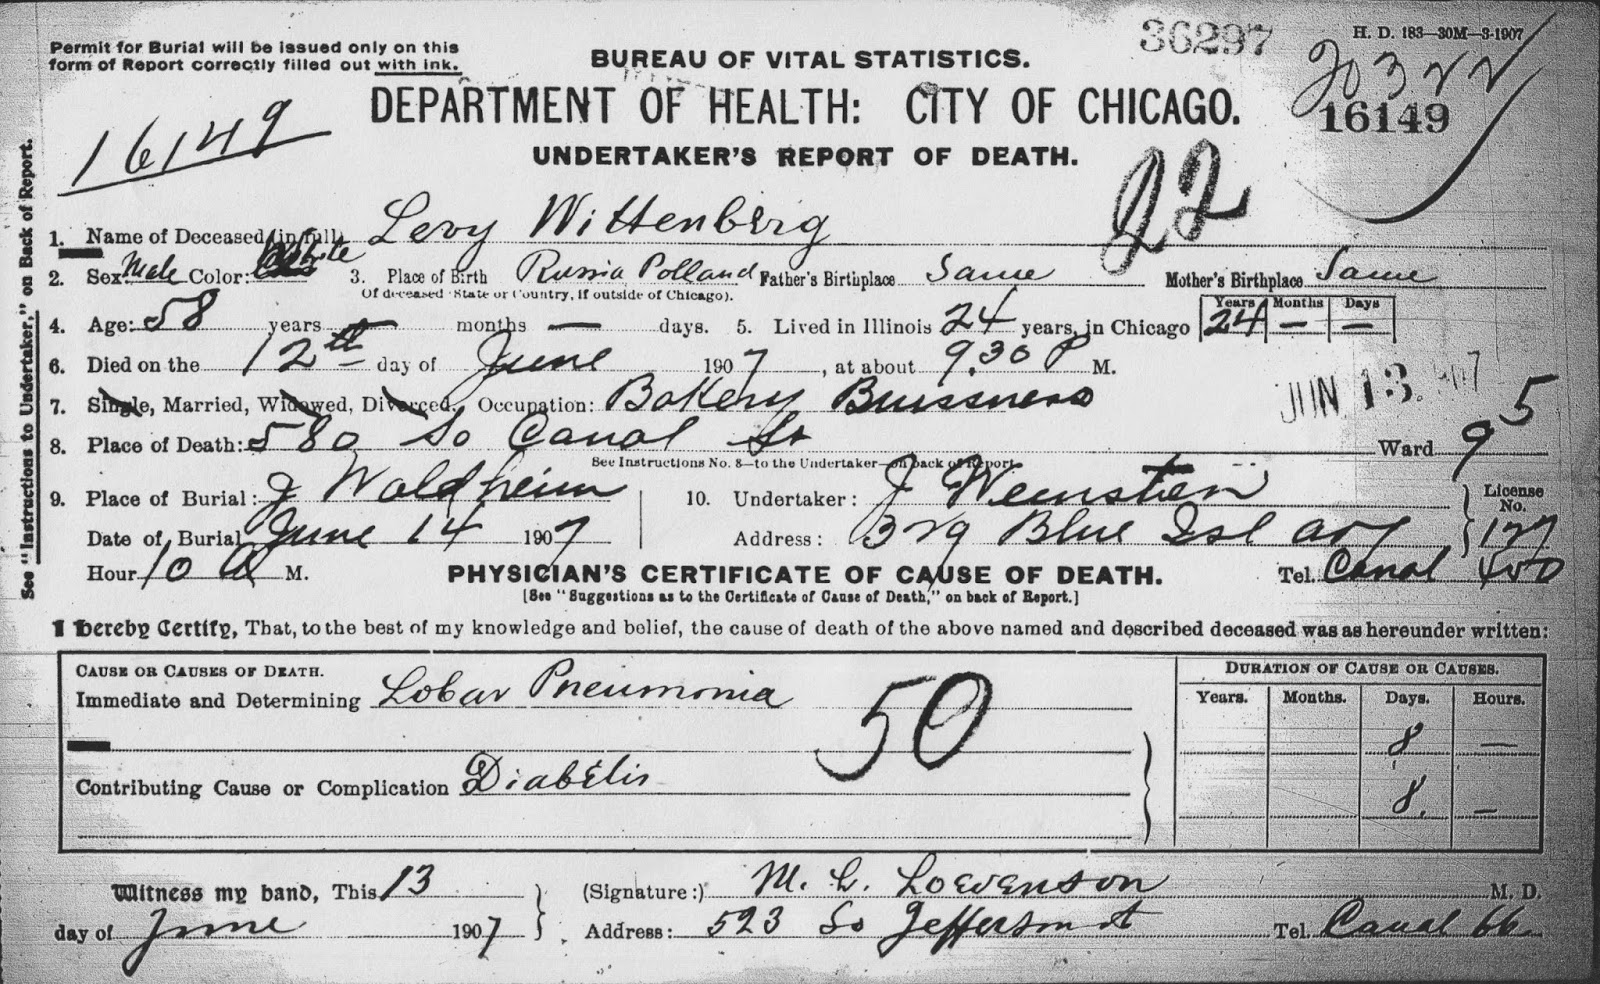 36297
H. D. 183—30M—3-1907
Permit for Burial will be issued only on this
form of Report correctly filled out with ink.
BUREAU OF VITAL STATISTICS.
20322
16149
DEPARTMENT OF HEALTH: CITY OF CHICAGO.
16149
UNDERTAKER'S REPORT OF DEATH.
22
See "Instructions to Undertaker," on Back of Report.
1. Name of Deceased (in full) Levy Wittenberg
2. Sex: Male Color: White 3. Place of Birth Russia Polland Father's Birthplace Same Mother's Birthplace Same
Of deceased (State or Country, if outside of Chicago).
4. Age: 58 years — months — days. 5. Lived in Illinois 24 years, in Chicago Years 24 Months — Days —
6. Died on the 12th day of June 1907, at about 9.30 P M.
JUN 13. 1907
7. Single, Married, Widowed, Divorced. Occupation: Bakery Buissness
8. Place of Death: 580 So Canal St Ward 9 5
See Instructions No. 8—to the Undertaker—on back of Report.
9. Place of Burial: J Waldheim 10. Undertaker: J Weinstein License No. 127
Date of Burial June 14 1907 Address: 329 Blue Isl av
Hour 10 A M. Tel. Canal
PHYSICIAN'S CERTIFICATE OF CAUSE OF DEATH.
[See "Suggestions as to the Certificate of Cause of Death," on back of Report.]
I hereby Certify, That, to the best of my knowledge and belief, the cause of death of the above named and described deceased was as hereunder written:
CAUSE OR CAUSES OF DEATH. DURATION OF CAUSE OR CAUSES.
Years. Months. Days. Hours.
Immediate and Determining Lobar Pneumonia 8 —
50
Contributing Cause or Complication Diabetis 8. —
Witness my hand, This 13 (Signature:) M. L. Loevenson M. D.
day of June 1907 Address: 523 So Jefferson st Tel. Canal 66